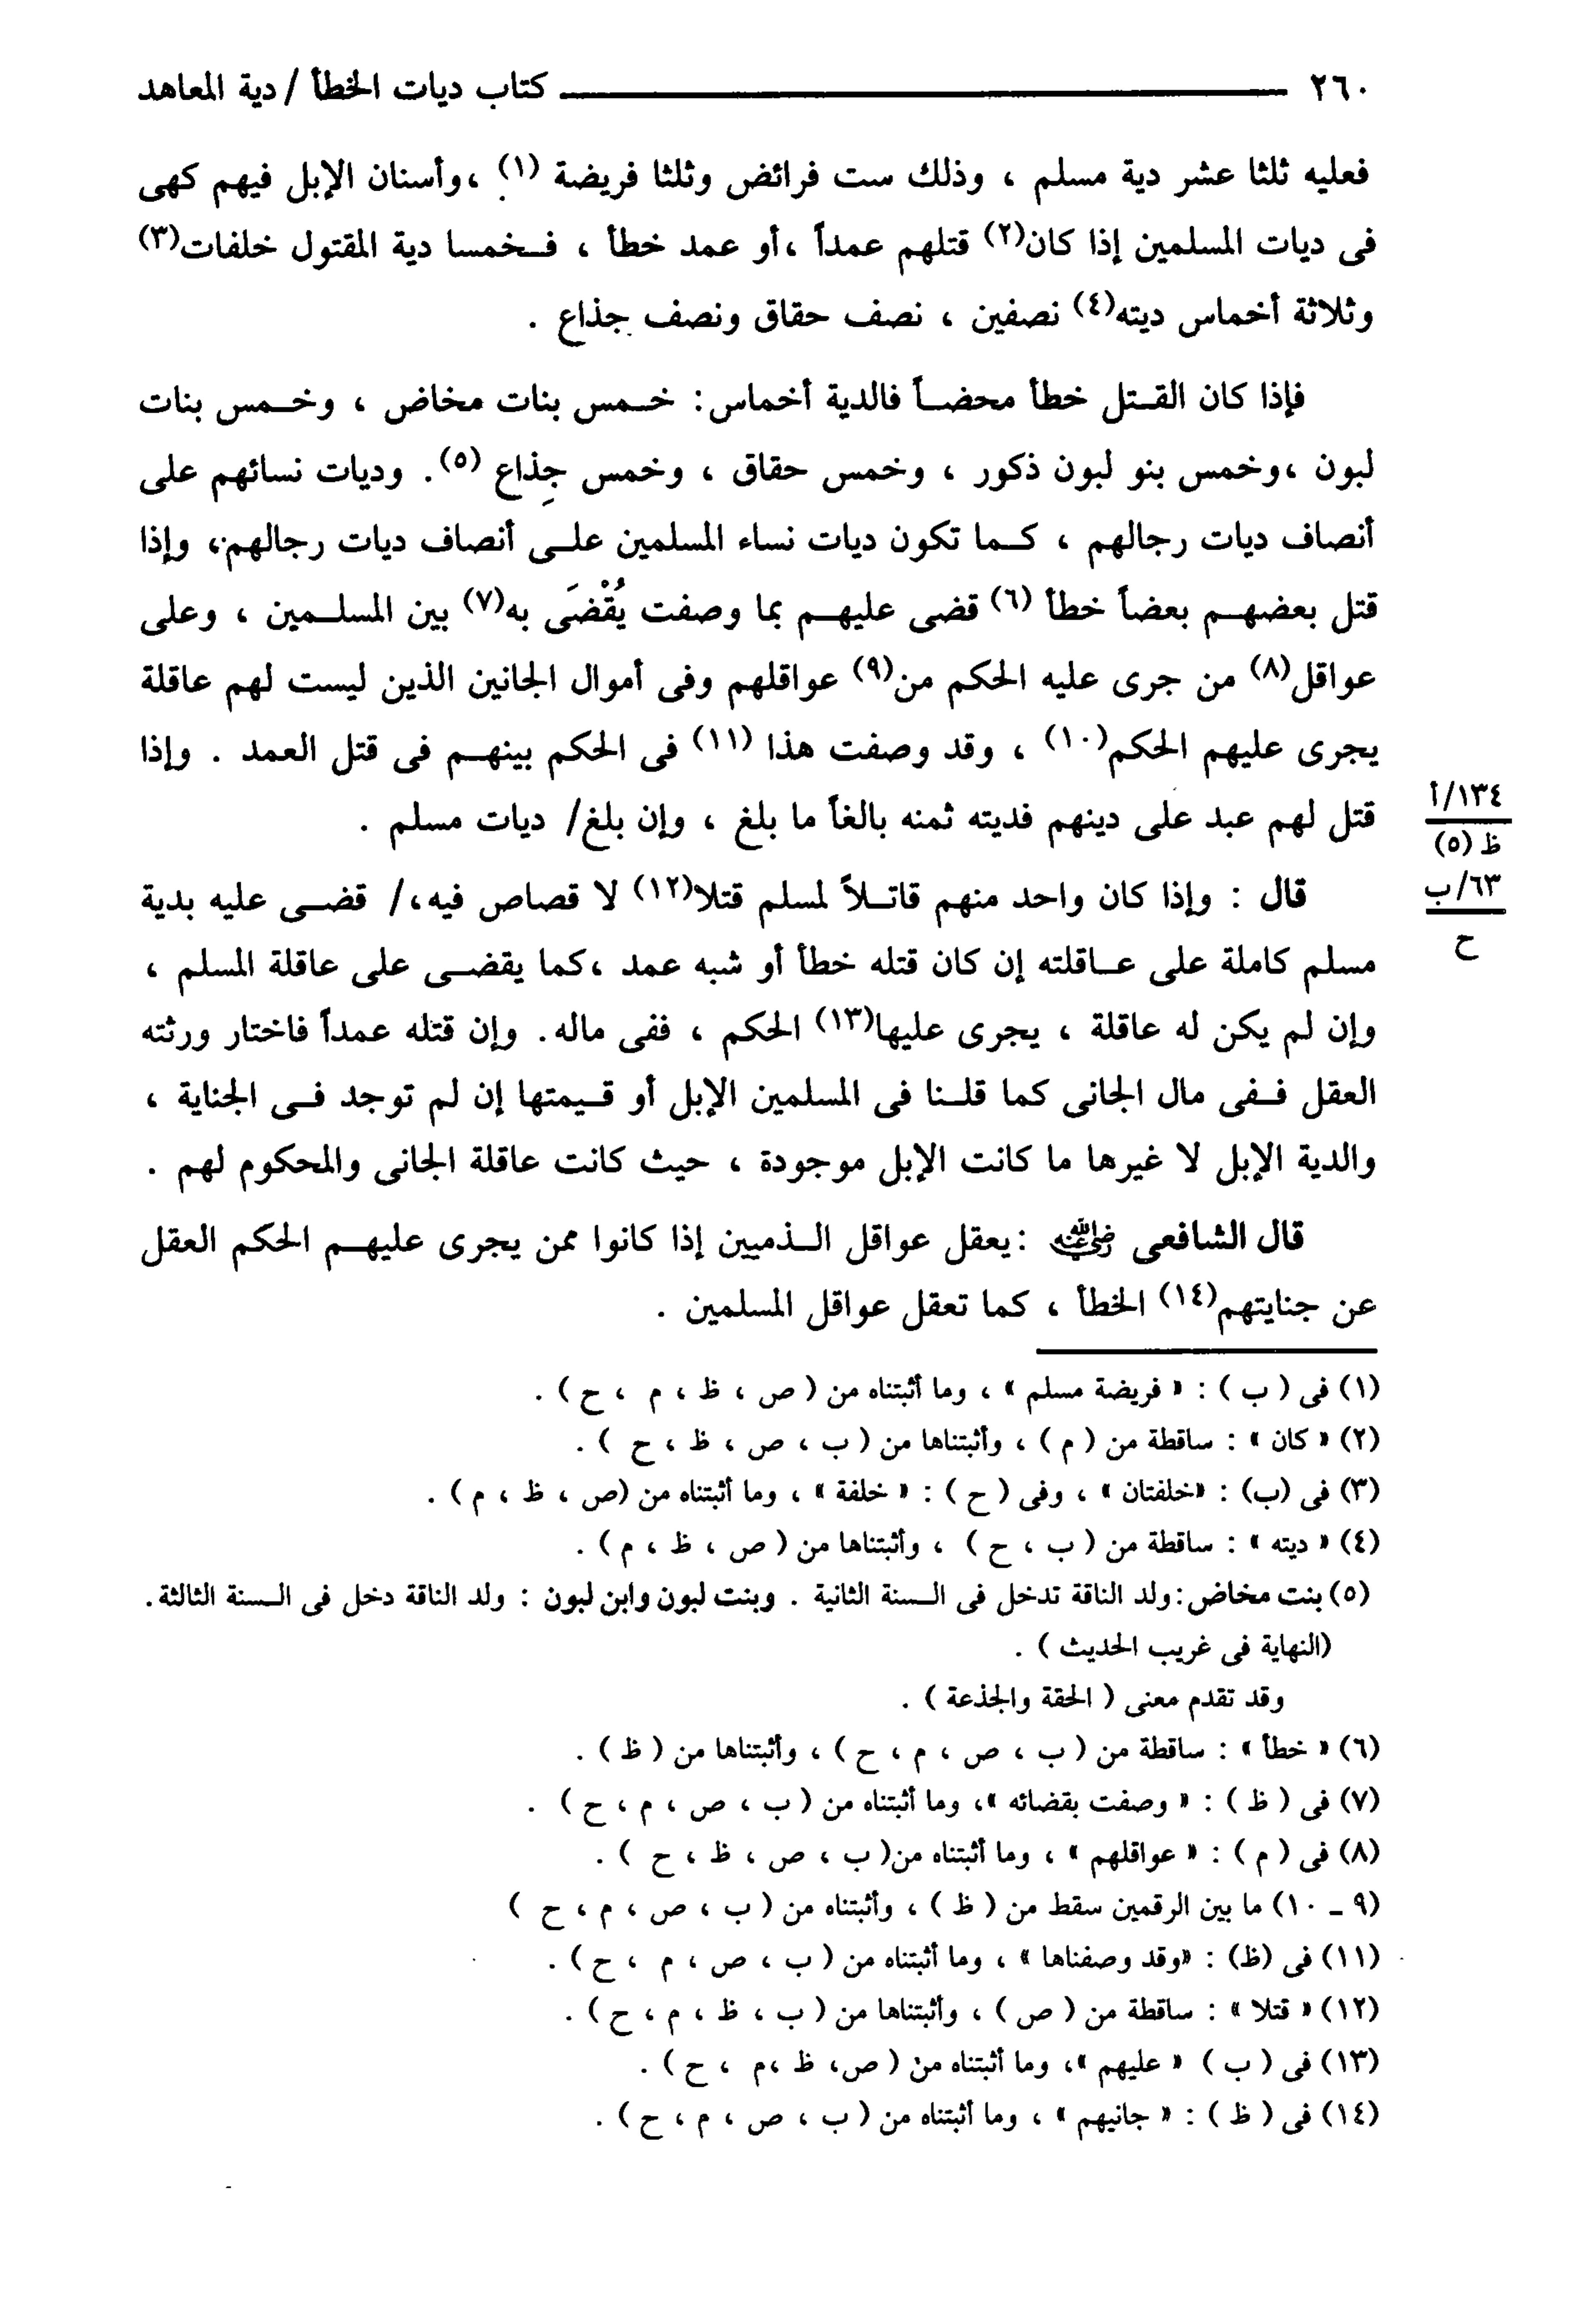 ٢٦٠ ــــــــــــــــــــــــــــــــــــــــ كتاب ديات الخطأ / دية المعاهد
فعليه ثلثا عشر دية مسلم ، وذلك ست فرائض وثلثا فريضة (١) ،وأسنان الإبل فيهم كهى
فى ديات المسلمين إذا كان(٢) قتلهم عمداً ،أو عمد خطأ ، فـخمسا دية المقتول خلفات(٣)
وثلاثة أخماس ديته(٤) نصفين ، نصف حقاق ونصف جذاع .
فإذا كان القـتل خطأ محضـاً فالدية أخماس: خـمس بنات مخاض ، وخـمس بنات
لبون ،وخمس بنو لبون ذكور ، وخمس حقاق ، وخمس جِذاع (٥). وديات نسائهم على
أنصاف ديات رجالهم ، كـما تكون ديات نساء المسلمين علـى أنصاف ديات رجالهم، وإذا
قتل بعضهـم بعضاً خطأ (٦) قضى عليهـم بما وصفت يُقْضَى به(٧) بين المسلـمين ، وعلى
عواقل(٨) من جرى عليه الحكم من(٩) عواقلهم وفى أموال الجانين الذين ليست لهم عاقلة
يجرى عليهم الحكم(١٠) ، وقد وصفت هذا (١١) فى الحكم بينهـم فى قتل العمد . وإذا
قتل لهم عبد على دينهم فديته ثمنه بالغاً ما بلغ ، وإن بلغ/ ديات مسلم .
١٣٤/أ
ظ (٥)
قال : وإذا كان واحد منهم قاتـلاً لمسلم قتلا(١٢) لا قصاص فيه،/ قضـى عليه بدية
٦٣/ب
ح
مسلم كاملة على عـاقلته إن كان قتله خطأ أو شبه عمد ،كما يقضـى على عاقلة المسلم ،
وإن لم يكن له عاقلة ، يجرى عليها(١٣) الحكم ، ففى ماله. وإن قتله عمداً فاختار ورثته
العقل فـفى مال الجانى كما قلـنا فى المسلمين الإبل أو قـيمتها إن لم توجد فـى الجناية ،
والدية الإبل لا غيرها ما كانت الإبل موجودة ، حيث كانت عاقلة الجانى والمحكوم لهم .
قال الشافعى رضي الله عنه :يعقل عواقل الـذميين إذا كانوا ممن يجرى عليهـم الحكم العقل
عن جنايتهم(١٤) الخطأ ، كما تعقل عواقل المسلمين .
(١) فى ( ب ) : « فريضة مسلم » ، وما أثبتناه من ( ص ، ظ ، م ، ح ) .
(٢) « كان » : ساقطة من ( م ) ، وأثبتناها من ( ب ، ص ، ظ ، ح ) .
(٣) فى (ب) : «خلفتان » ، وفى ( ح ) : « خلفة » ، وما أثبتناه من (ص ، ظ ، م ) .
(٤) « ديته » : ساقطة من ( ب ، ح ) ، وأثبتناها من ( ص ، ظ ، م ) .
(٥) بنت مخاض :ولد الناقة تدخل فى الـسنة الثانية . وبنت لبون وابن لبون : ولد الناقة دخل فى الـسنة الثالثة.
(النهاية فى غريب الحديث ) .
وقد تقدم معنى ( الحقة والجذعة ) .
(٦) « خطأ » : ساقطة من ( ب ، ص ، م ، ح ) ، وأثبتناها من ( ظ ) .
(٧) فى ( ظ ) : « وصفت بقضائه »، وما أثبتناه من ( ب ، ص ، م ، ح ) .
(٨) فى ( م ) : « عواقلهم » ، وما أثبتناه من( ب ، ص ، ظ ، ح ) .
(٩ ـ ١٠) ما بين الرقمين سقط من ( ظ ) ، وأثبتناه من ( ب ، ص ، م ، ح )
(١١) فى (ظ) : «وقد وصفناها » ، وما أثبتناه من ( ب ، ص ، م ، ح ) .
(١٢) « قتلا » : ساقطة من ( ص ) ، وأثبتناها من ( ب ، ظ ، م ، ح ) .
(١٣) فى ( ب ) « عليهم »، وما أثبتناه من ( ص، ظ ،م ، ح ) .
(١٤) فى ( ظ ) : « جانيهم » ، وما أثبتناه من ( ب ، ص ، م ، ح ) .